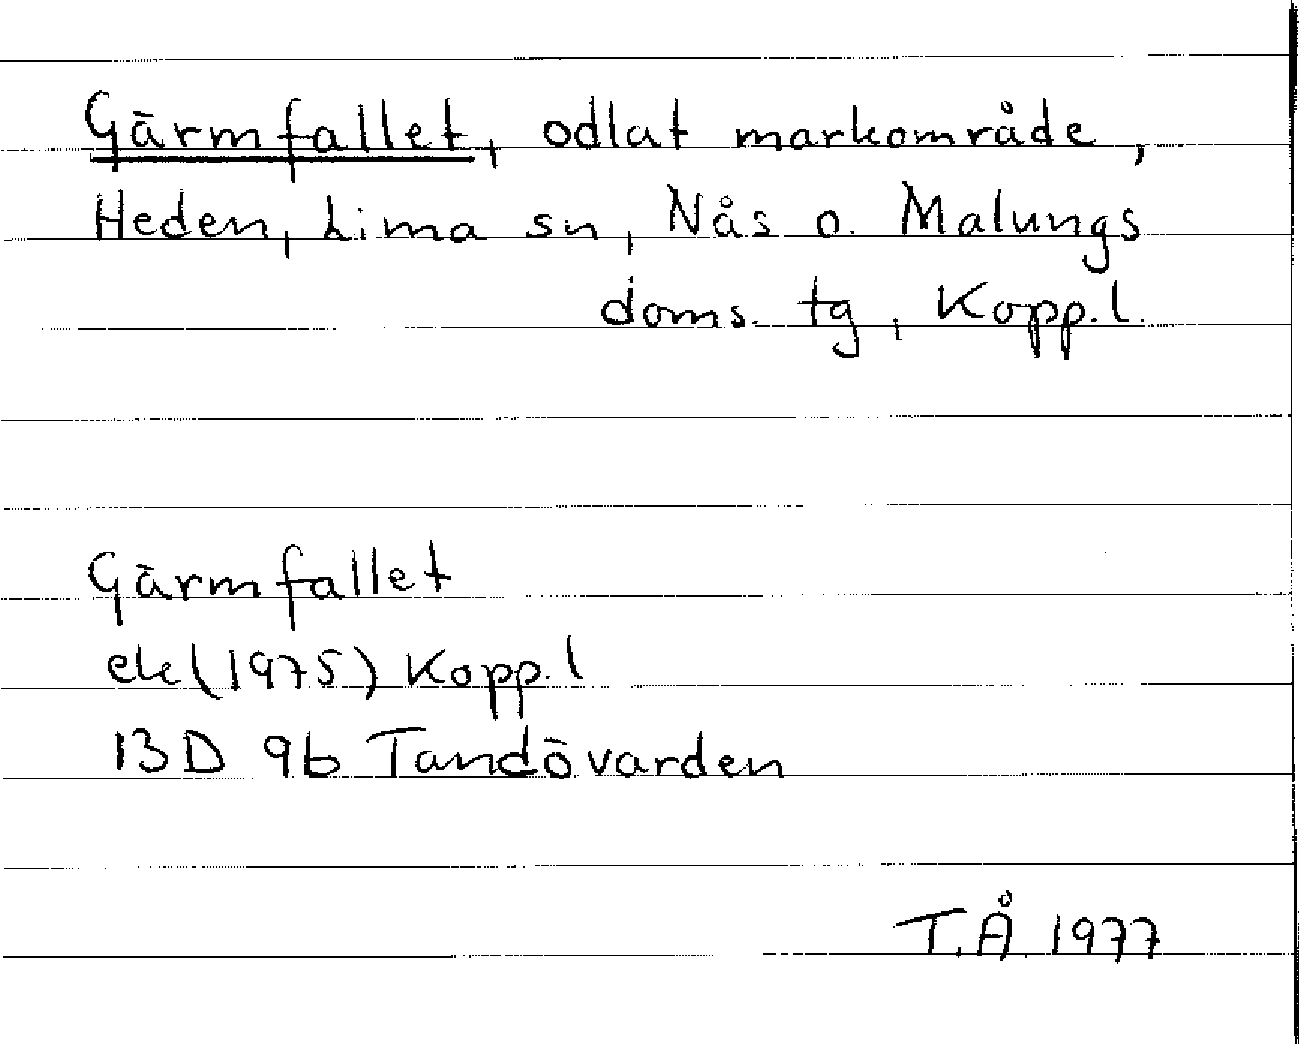 Gärmfallet, odlat markområde,
Heden, Lima sn, Nås o. Malungs
doms. tg, Kopp.l.
Gärmfallet
ek (1975) Kopp.l
13D 9b Tandövarden
T.Å. 1977